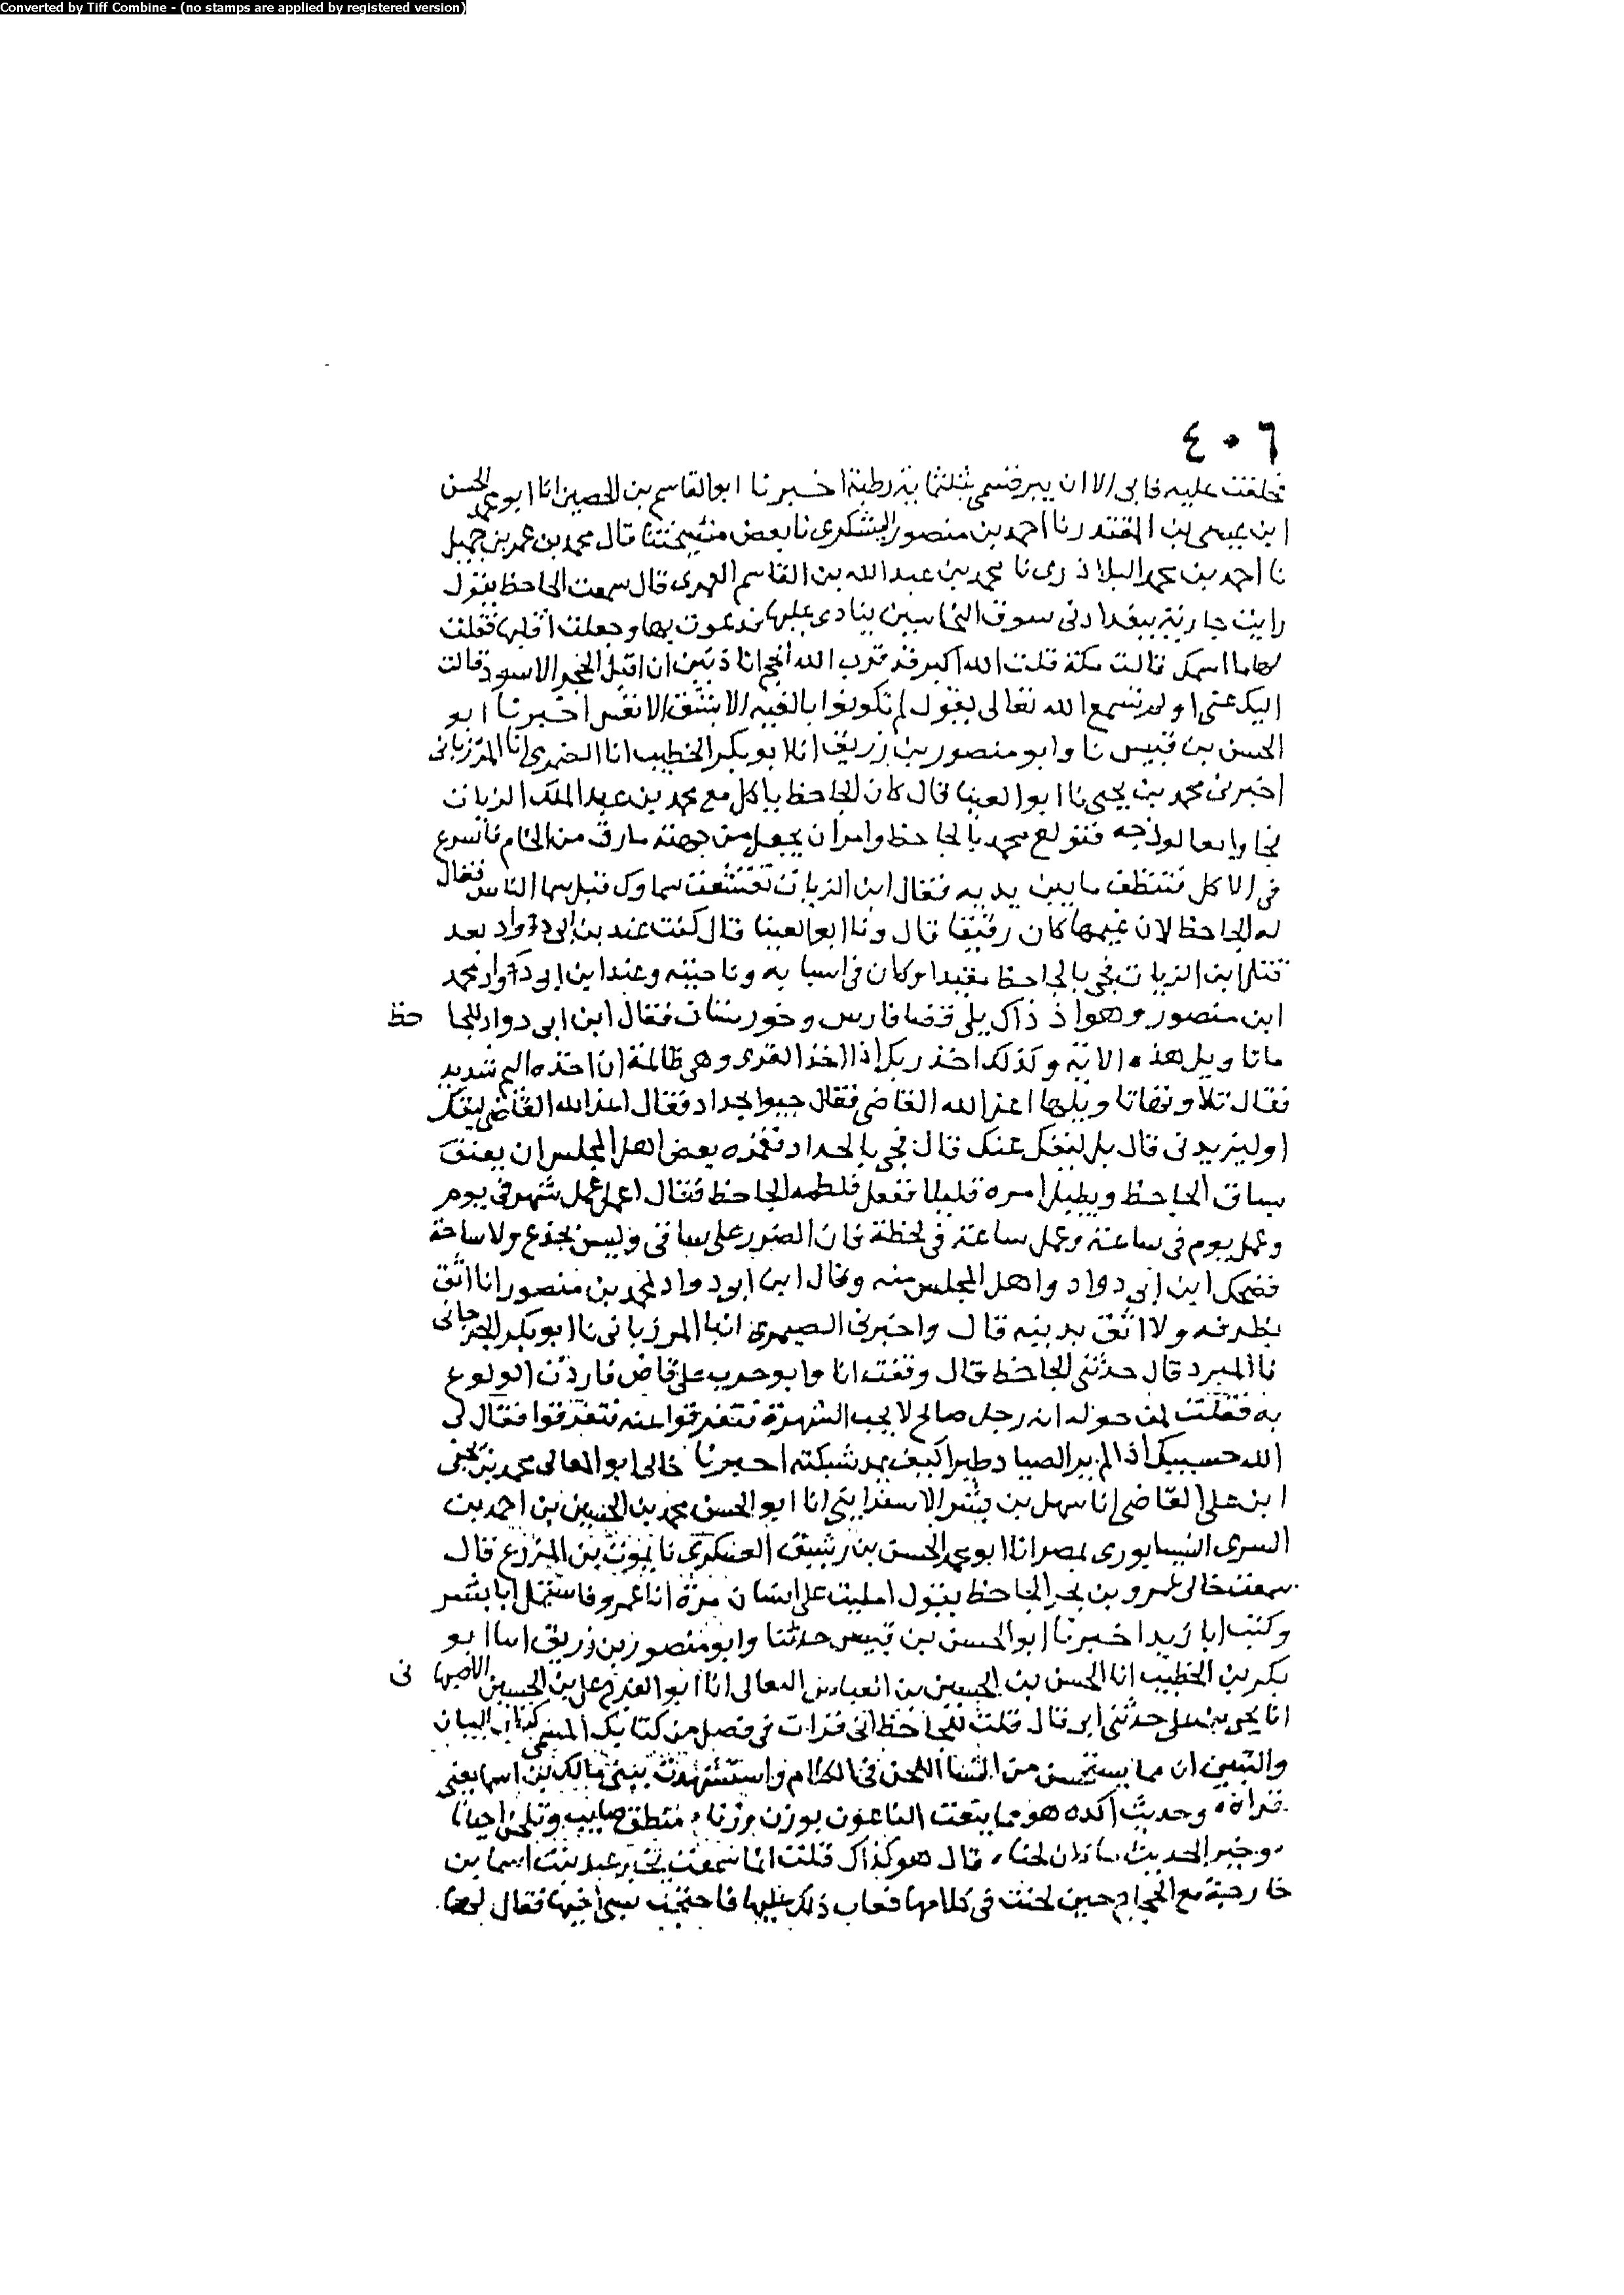 Converted by Tiff Combine - (no stamps are applied by registered version)
٤٠٦
فحلفت عليه فابى الا ان يبرقسمى بثلثماية رطبة اخبرنا ابو القاسم بن الحصين انا ابو محمد الحسن
ابن عيسى بن المقتدر نا احمد بن منصور اليشكرى نا بعض مشيختنا قال محمد بن عمر بن جميل
نا احمد بن محمد البلاذرى نا محمد بن عبد الله بن القاسم العمرى قال سمعت الجاحظ يقول
رايت جارية ببغداد فى سوق النخاسين ينادى عليها فدعوت بها وجعلت اقلبها فقلت
لها ما اسمك قالت مكة قلت الله اكبر قد قرب الله الحج اتاذنين ان اقبل الحجر الاسود قالت
اليك عنى اولم تسمع الله تعالى يقول لم تكونوا بالغيه الا بشق الانفس اخبرنا ابو
الحسن بن قبيس نا وابو منصور بن زريق انا ابو بكر الخطيب انا الصيمرى انا المرزبانى
اخبرنى محمد بن يحيى نا ابو العينا قال كان الجاحظ ياكل مع محمد بن عبد الملك الزيات
فجاوا بفالوذجه فتولع محمد بالجاحظ وامر ان يجعل من جهته مارق من الجام فاسرع
فى الاكل فتنظف ما بين يديه فقال ابن الزيات تقشعت سماوك قبل سما الناس فقال
له الجاحظ لان غيمها كان رقيقا قال ونا ابو العينا قال كنت عند بن ابى دواد بعد
قتل ابن الزيات فجى بالجاحظ مقيدا وكان فى اسبابه وناحيته وعند ابن ابى دواد محمد
ابن منصور وهو اذ ذاك يلى قضا فارس وخورستان فقال ابن ابى دواد للجاحظ
ما تاويل هذه الاية وكذلك اخذ ربك اذا اخذ القرى وهى ظالمة ان اخذه اليم شديد
فقال تلاوتها تاويلها اعز الله القاضى فقال جيوا بحداد فقال اعز الله القاضى ليفك
او ليزيدنى قال بل ليفك عنك قال فجى بالحداد فغمزه بعض اهل المجلس ان يعنف
بساق الجاحظ ويطيل امره قليلا ففعل فلطمه الجاحظ فقال اعمل عمل شهر فى يوم
وعمل يوم فى ساعة وعمل ساعة فى لحظة فان الضرر على ساقى وليس بجذع ولا ساجة
فضحك ابن ابى دواد واهل المجلس منه وقال ابن ابو دواد لمحمد بن منصور انا اثق
بظرفه ولا اثق بدينه قال واخبرنى الصيمرى انبا المرزبانى نا ابو بكر الجرجانى
نا المبرد قال حدثنى الجاحظ قال وقفت انا وابو حرب على قاص فاردت الولوع
به فقلت لمن حوله انه رجل صالح لا يحب الشهرة فتفرقوا عنه فتفرقوا فقال لى
الله حسيبك اذا لم ير الصياد طيرا كيف يمد شبكته اخبرنا خالى ابو المعالى محمد بن يحيى
ابن على القاضى انا سهل بن بشر الاسفراينى انا ابو الحسن محمد بن الحسين بن احمد بن
السرى النيسابورى بمصر انا ابو محمد الحسن بن رشيق العسكرى نا يموت بن المزرع قال
سمعت خالى عمرو بن بحر الجاحظ يقول امليت على انسان مرة انا عمرو فاستملى ابا بشر
وكتب ابا زيد اخبرنا ابو الحسن بن قبيس حدثنا وابو منصور بن زريق انا ابو
بكر بن الخطيب انا الحسن بن الحسين بن العباس النعالى انا ابو الفرج على بن الحسين الاصبهانى
انا يحيى بن على حدثنى ابى قال قلت للجاحظ انى قرات فى فصل من كتابك المسمى كتاب البيان
والتبيين ان مما يستحسن من النسا اللحن فى الكلام واستشهدت ببيتى مالك بن اسما يعنى
قراة وحديث الذه هو مما ينعت الناعتون يوزن وزنا منطق صايب وتلحن احيانا
وخير الحديث ما كان لحنا قال هو كذاك قلت اما سمعت بخبر هند بنت اسما بن
خارجة مع الحجاج حين لحنت فى كلامها فعاب ذلك عليها فاحتجت ببيتى اخيها فقال لها